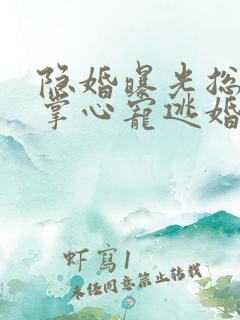 隐婚曝光总
掌心宠逃婚
虾寫1
未经同意禁止转载